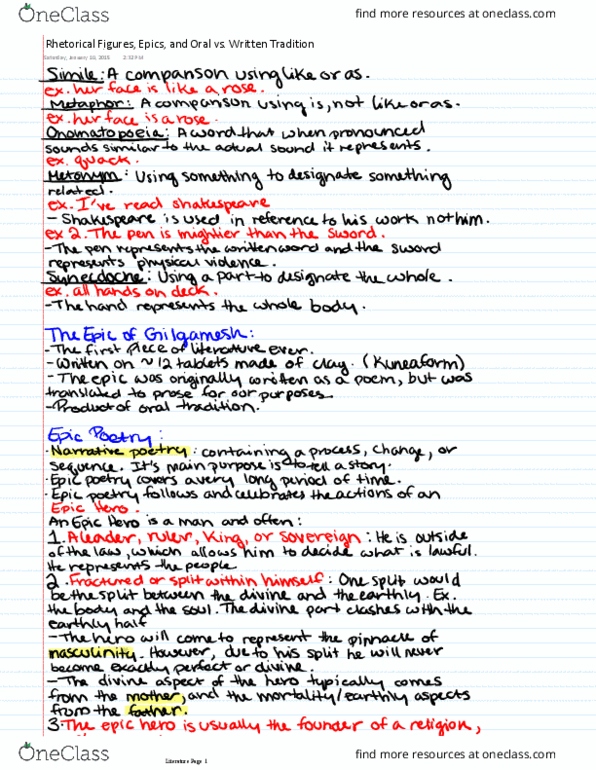 OneClass
find more resources at oneclass.com
Rhetorical Figures, Epics, and Oral vs. Written Tradition
Saturday, January 10, 2015 2:32 PM
Simile: A comparison using like or as.
ex. her face is like a rose.
Metaphor: A comparison using is, not like or as.
ex. her face is a rose.
Onomatopoeia: A word that when pronounced
sounds similar to the actual sound it represents.
ex. quack.
Metonym: Using something to designate something
related.
ex. I've read shakespeare
- Shakespeare is used in reference to his work not him.
ex 2. The pen is mightier than the sword.
- The pen represents the written word and the sword
represents physical violence.
Synecdoche: Using a part to designate the whole.
ex. all hands on deck.
- The hand represents the whole body.
The Epic of Gilgamesh:
- The first piece of literature ever.
- Written on ~12 tablets made of clay. (Kuneaform)
- The epic was originally written as a poem, but was
translated to prose for our purposes
- Product of oral tradition.
Epic Poetry:
· Narrative poetry: containing a process, change, or
sequence. It's main purpose is to tell a story.
· Epic poetry covers a very long period of time.
· Epic poetry follows and celebrates the actions of an
Epic Hero.
An Epic Hero is a man and often:
1. A leader, ruler, King, or Sovereign: He is outside
of the law, which allows him to decide what is lawful.
He represents the people
2. Fractured or split within himself: One split would
be the split between the divine and the earthly. Ex.
the body and the soul. The divine part clashes with the
earthly half
- The hero will come to represent the pinnacle of
masculinity. However, due to his split he will never
become exactly perfect or divine.
- The divine aspect of the hero typically comes
from the mother, and the mortality/earthly aspects
from the father.
3. The epic hero is usually the founder of a religion,
OneClass
Literature Page 1
find more resources at oneclass.com